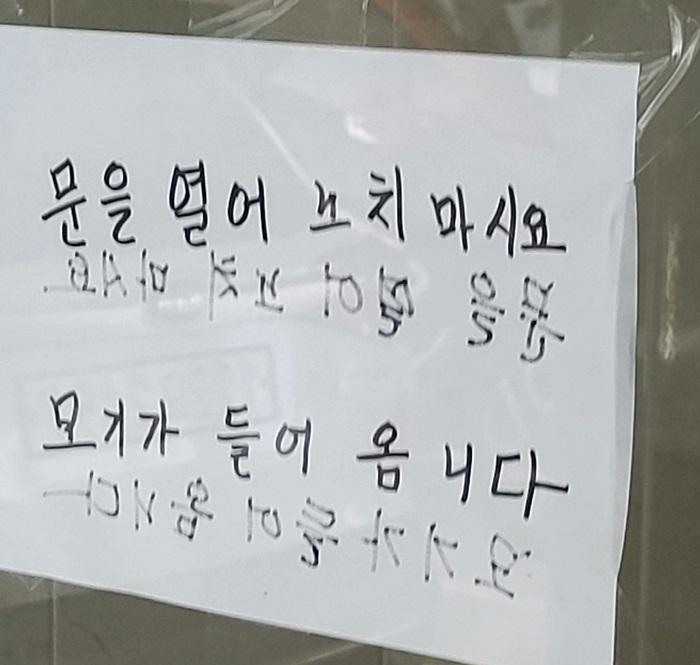 문을 열어 노치 마시요
모기가 들어 옴니다